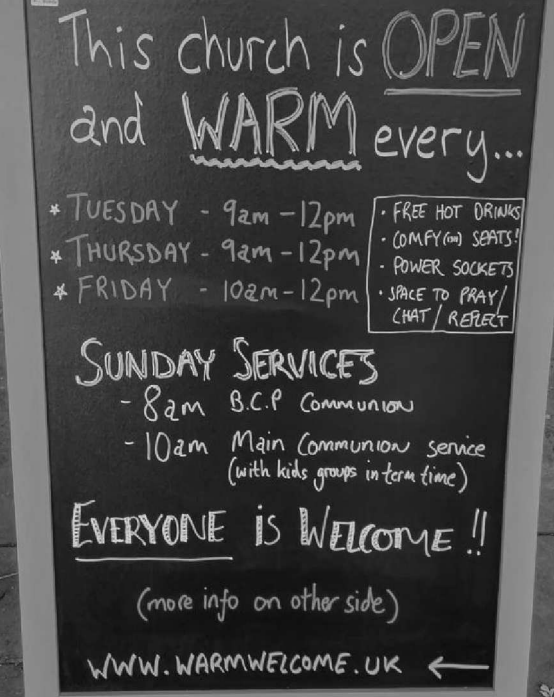 This church is OPEN
and WARM every...
* TUESDAY - 9am - 12pm
* THURSDAY - 9am - 12pm
* FRIDAY - 10am - 12pm
· FREE HOT DRINKS
· COMFY(ish) SEATS!
· POWER SOCKETS
· SPACE TO PRAY/
CHAT / REFLECT
SUNDAY SERVICES
- 8am B.C.P COMMUNION
- 10am Main Communion service
(with kids groups in term time)
EVERYONE is WELCOME !!
(more info on other side)
WWW.WARMWELCOME.UK ←